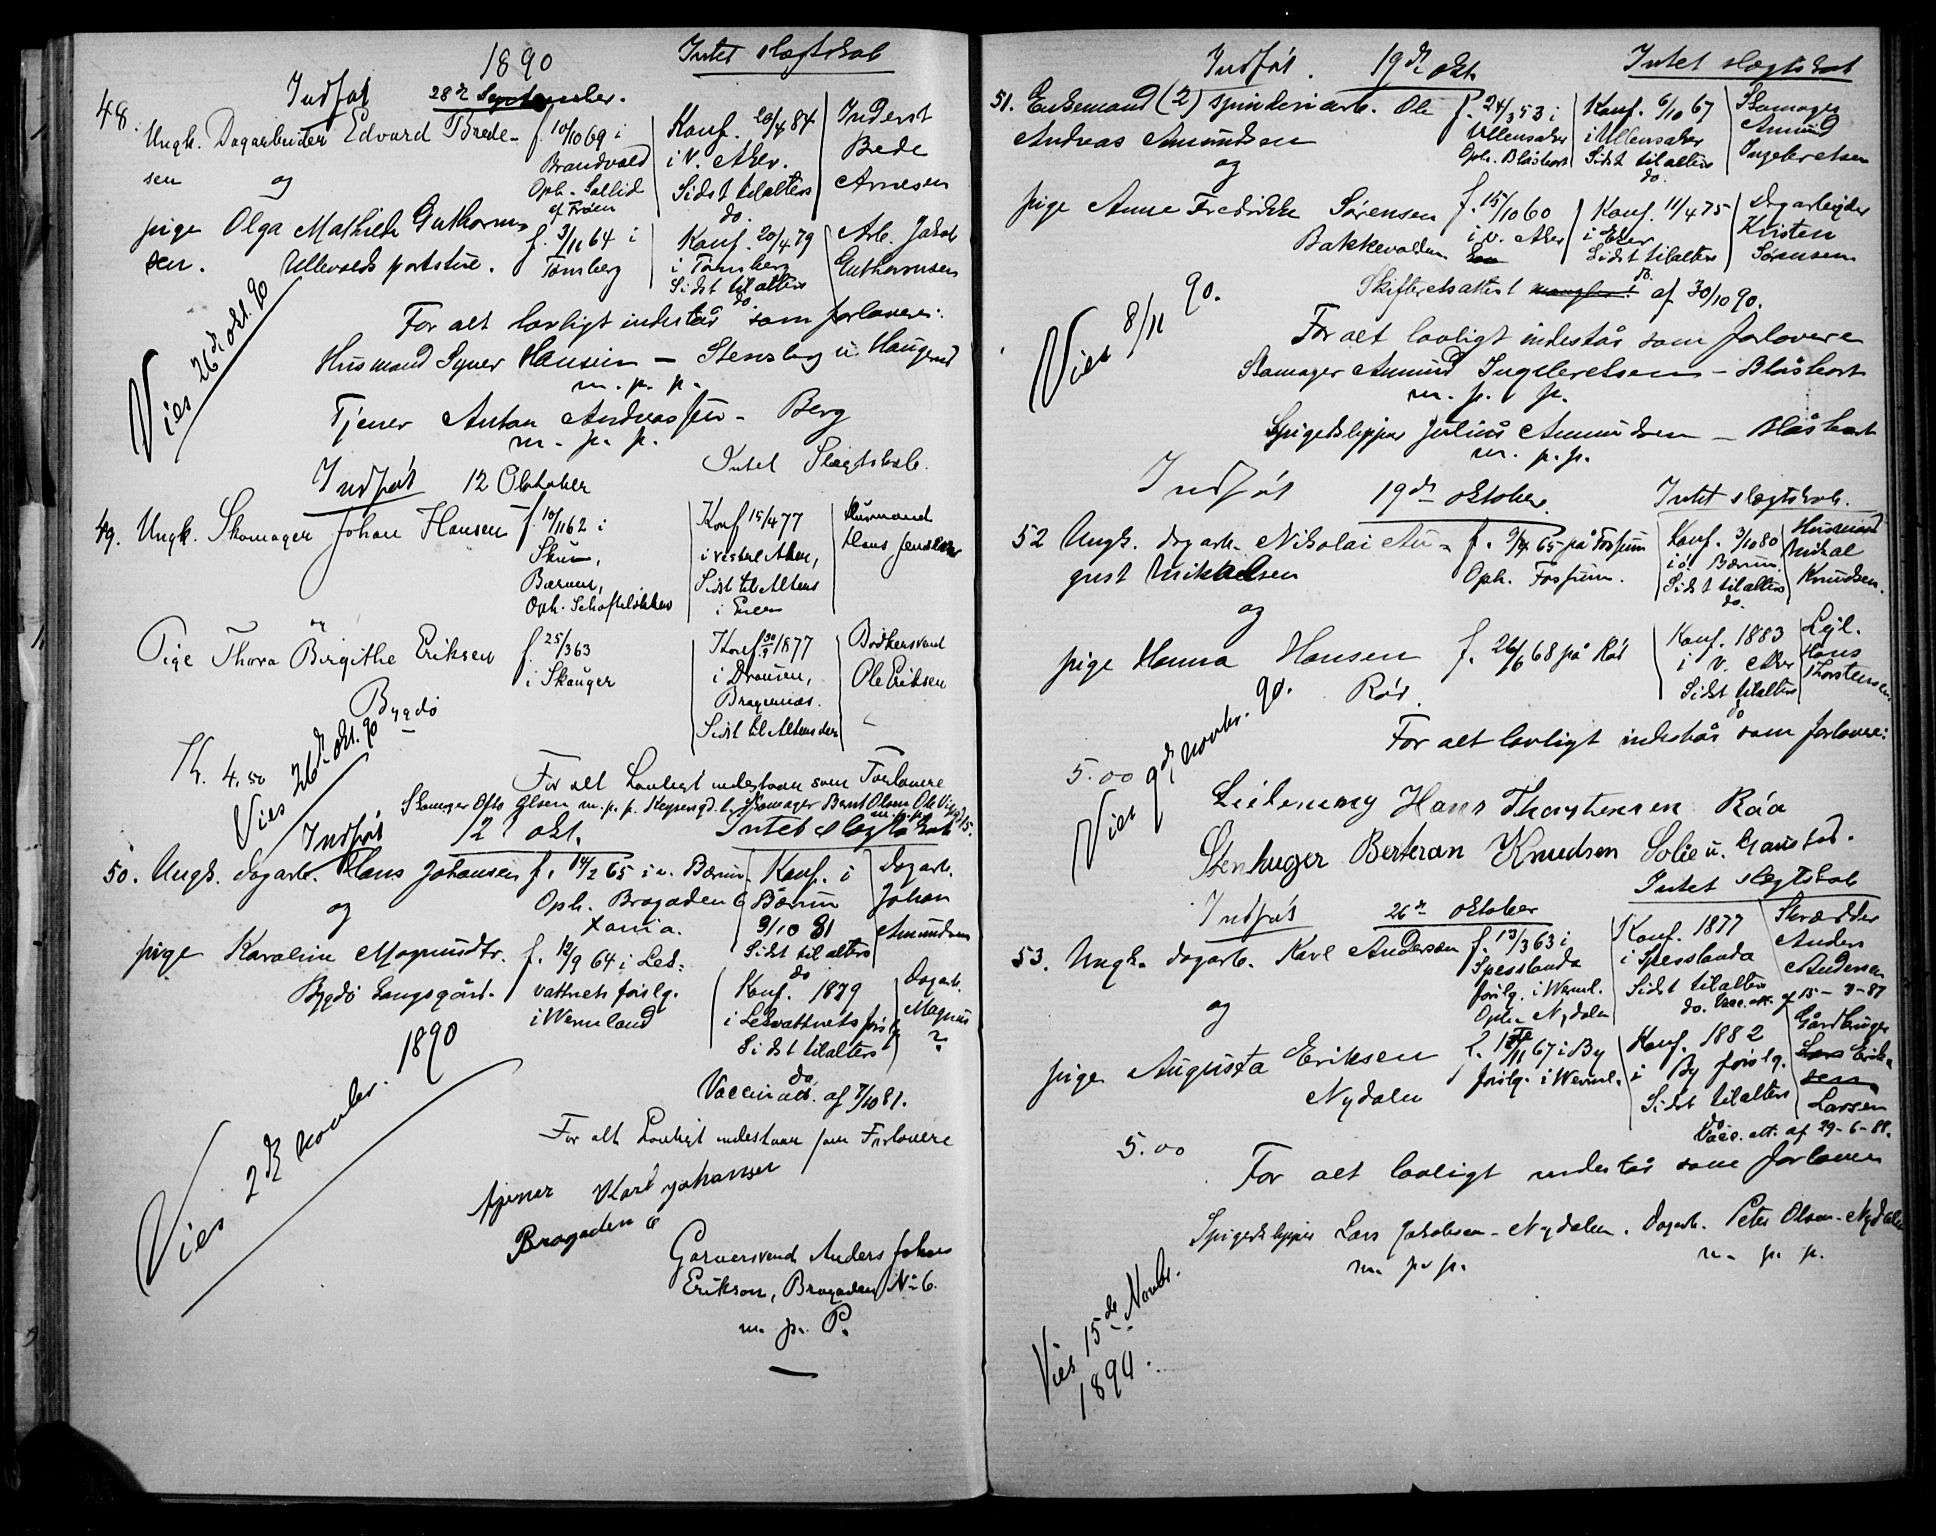 1890
Intet slægtskab
Indført 28de September.
48. Ungk. Dagarbeider Edvard Brede-
sen og
f. 10/10 69 i
Brandvold
Oph. Sollid
af Frøen
Konf. 20/4 84
i V. Aker.
Sidst til alters
do.
Inderst
Brede
Arnesen
pige Olga Mathilde Guthorm-
sen. Ullevolds portstue.
f. 3/11 64 i
Tønsberg
Konf. 20/4 79
i Tønsberg
Sidst til alters
do.
Arb. Jakob
Guthormsen
Viet 26de okt. 90
For alt lovligt indestår som forlovere:
Husmand Syver Hansen – Stensby u. Haugerud
m. p. p.
Tjener Anton Andreassen – Berg
m. p. p.
Intet Slægtskab.
Indført 12 Oktober
49. Ungk. Skomager Johan Hansen
f. 10/11 62 i
Skui,
Bærum,
Oph. Schafteløkken
Konf 15/4 77
i Vestre Aker,
Sidst til Alters
i Eker
Husmand
Hans Jensen
og
Pige Thora Birgithe Eriksen
Bygdø
f. 25/3 63
i Skauger
Konf. 30/9 1877
i Dramen,
Bragernæs.
Sidst til Alters der
Bødkersvend
Ole Eriksen
Kr. 4.50
Viet 26de okt. 90
For alt Lovligt indestaar som Forlovere
Skomager Otto Olsen m. p. p. Skomager Bernt Olsen
m. p. p.
Indført 12te okt. Intet slægtskab
50. Ungk. dagarb. Hans Johansen
og
f. 14/2 65 i v. Bærum.
Oph. Brogaden 6
Xania.
Konf. i
Bærum
9/10 81
Sidst til alters
do
Dagarb.
Johan
Amundsen
pige Karoline Magnusdtr.
Bygdø Kongsgård.
f. 12/9 64 i Lek-
vattnets førslg.
i Wermland
Konf. 1879
i Lekvattnets førslg
Sidst til alters
do.
Dagarb.
Magnus
?
Vaccinatt. af 7/10 81.
Viet 2de novbr. 1890
For alt Lovligt indestaar som Forlovere
tjener Karl Johansen
Brogaden 6
Garversvend Anders Johan
Erikson, Brogaden No 6.
m. p. P.
Indført. 19de okt. Intet slægtskab
51. Enkemand (2) spinderiarb. Ole
Andreas Amundsen
og
f. 24/3 53 i
Ullensaker
Oph. Blåskort
Konf. 6/10 67
i Ullensaker
Sidst til alters
do.
Skomager
Amund
Ingebretsen
pige Anne Fredrikke Sørensen
Bakkevolden
f. 15/10 60
i V. Aker
Konf. 11/4 75
i Eker
Sidst til alters
do.
Dagarbeider
Kristen
Sørensen
Skifteretsattest mangler! af 30/10 90.
Viet 8/11 90.
For alt lovligt indestår som forlovere
Skomager Amund Ingebretsen – Blåskort
m. p. p.
Spigerklipper Julius Amundsen – Blåskort
m. p. p.
Indført 19de oktober. Intet slægtskab.
52 Ungk. dagarb. Nikolai Au-
gust Mikkelsen
og
f. 9/4 65 på Fossum
Oph. Fossum.
Konf. 3/10 80
i ø. Bærum.
Sidst til alters
do.
Husmand
Mikal
Knudsen.
pige Hanna Hansen
Røs.
f. 26/6 68 på Røs
Konf. 1883
i V. Aker
Sidst til alters
do
Lejl.
Hans
Thorstensen
5.00
Viet 9de novbr. 90.
For alt lovligt indestår som forlovere:
Leilænning Hans Thorstensen Røa
Stenhuger Berteran Knudsen Solie u. Gaustad.
Indført 26de oktober Intet slægtskab
53. Ungk. dagarb. Karl Andersen
og
f. 13/3 63 i
Spesslanda
førslg. i Werml.
Oph. Nydalen
Konf. 1877
i Spesslanda
Sidst til alters
do. Vacc. att. af 15-3-87
Skrædder
Anders
Andersen
pige Augusta Eriksen
Nydalen
f. 15/11 67 i By
førslg. i Werml.
Konf. 1882
i By førslg.
Sidst til alters
do
Vacc. att. af 29-6-88.
Gårdbruger
Lars Erik-
sen
Larsen
5.00
For alt lovligt indestår som forlovere
Spigerklipper Lars Jakobsen – Nydalen. Dagarb. Peter Olsen – Nydalen
m. p. p. m. p. p.
Viet 15de Novbr.
1890.